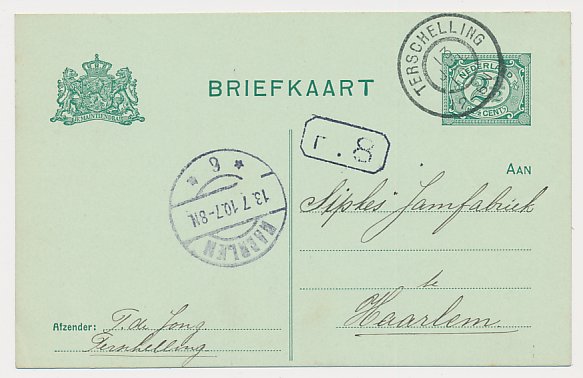 TERSCHELLING
13
NEDERLAND
CENT
JE MAINTIENDRAI
BRIEFKAART
r. 8
AAN
6
13.7.10.7-8N.
HAARLEM
Sipkes' Jamfabriek
te
Haarlem.
Afzender: T. de Jong
Terschelling